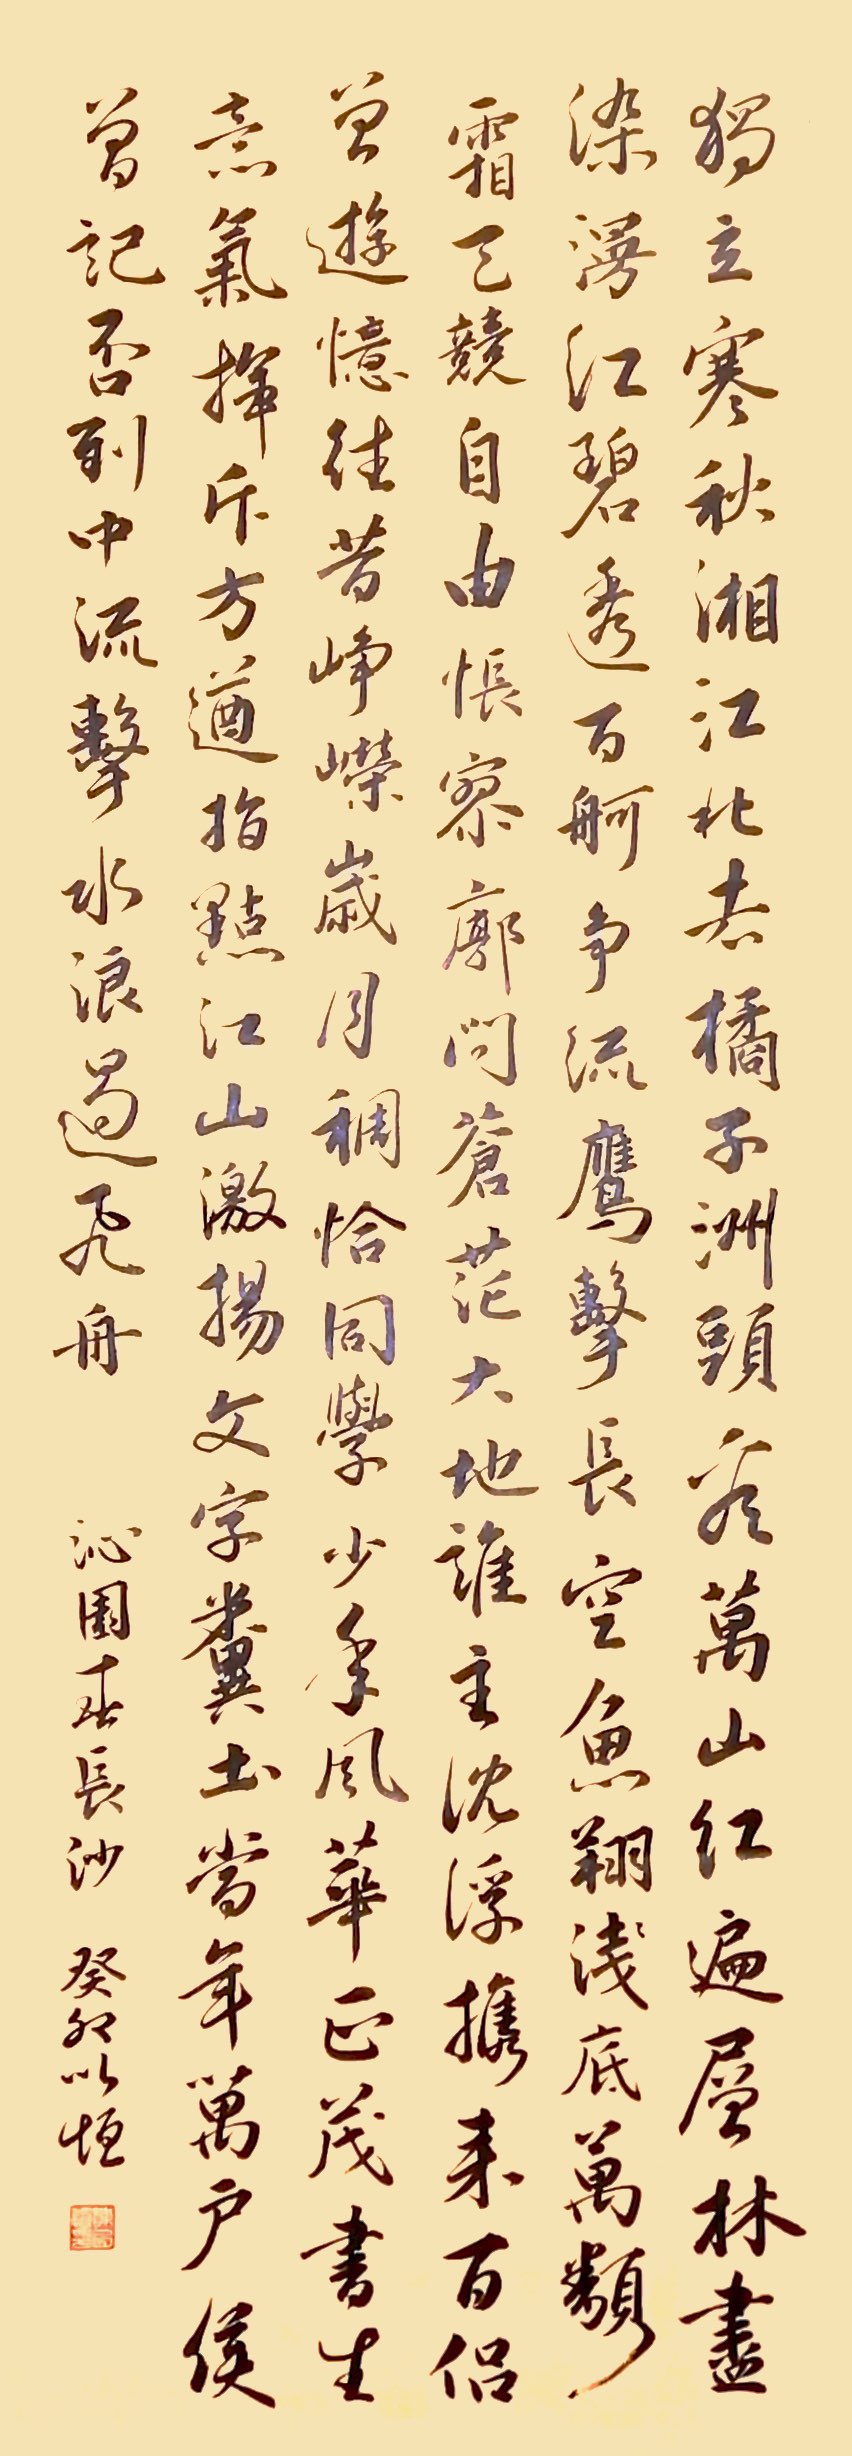 獨立寒秋湘江北去橘子洲頭看萬山紅遍層林盡
染漫江碧透百舸争流鹰擊長空魚翔淺底萬類
霜天競自由悵寥廓問蒼茫大地誰主沈浮攜来百侣
曾遊憶往昔崢嶸歲月稠恰同學少年风華正茂書生
意氣揮斥方遒指點江山激揚文字糞土當年萬户侯
曾記否到中流擊水浪遏飛舟
沁園春長沙
癸卯以恒